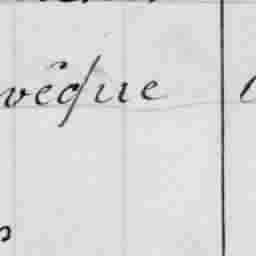 vêque